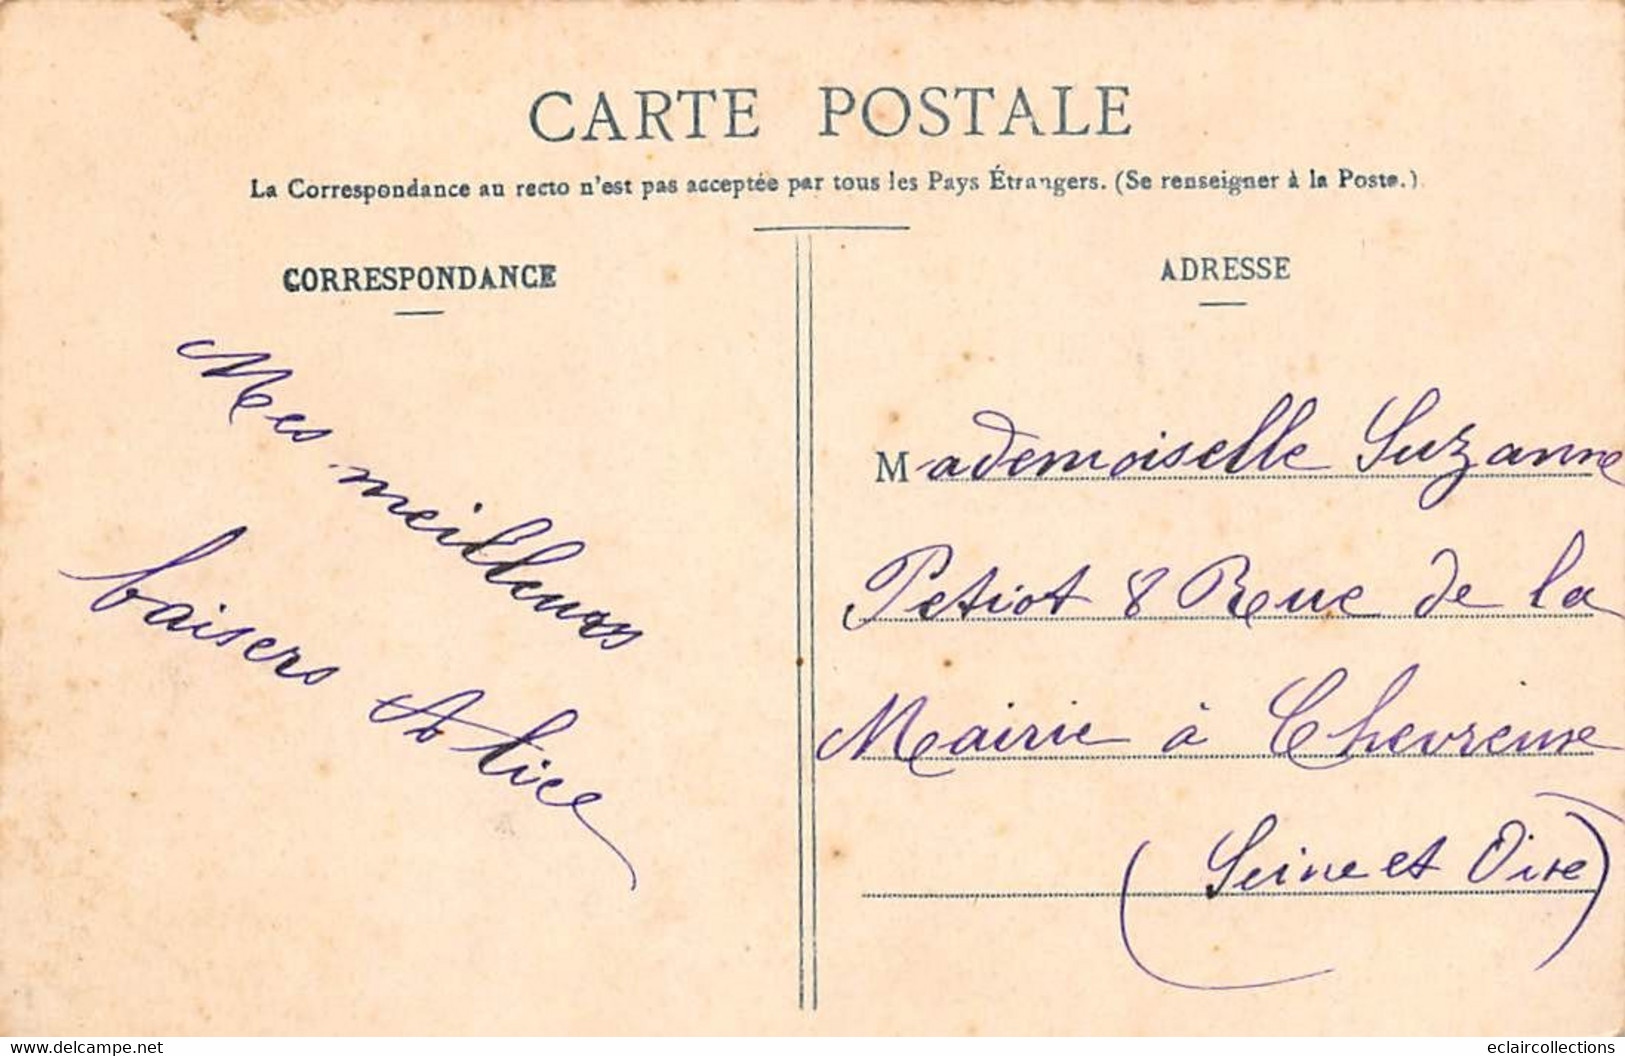 CARTE POSTALE
La Correspondance au recto n'est pas acceptée par tous les Pays Étrangers. (Se renseigner à la Poste.)
CORRESPONDANCE
Mes meilleurs
baisers Alice
ADRESSE
Mademoiselle Suzanne
Petiot 8 Rue de la
Mairie à Chevreuse
(Seine et Oise)
delcampe.net
eclaircollections